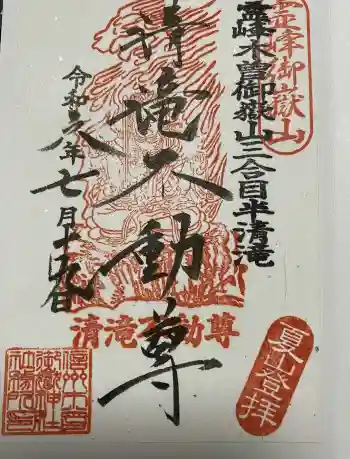 霊峰御嶽山
霊峰木曽御嶽山三合目半清滝
清滝不動尊
令和六年七月十四日
清滝不動尊
夏山登拝